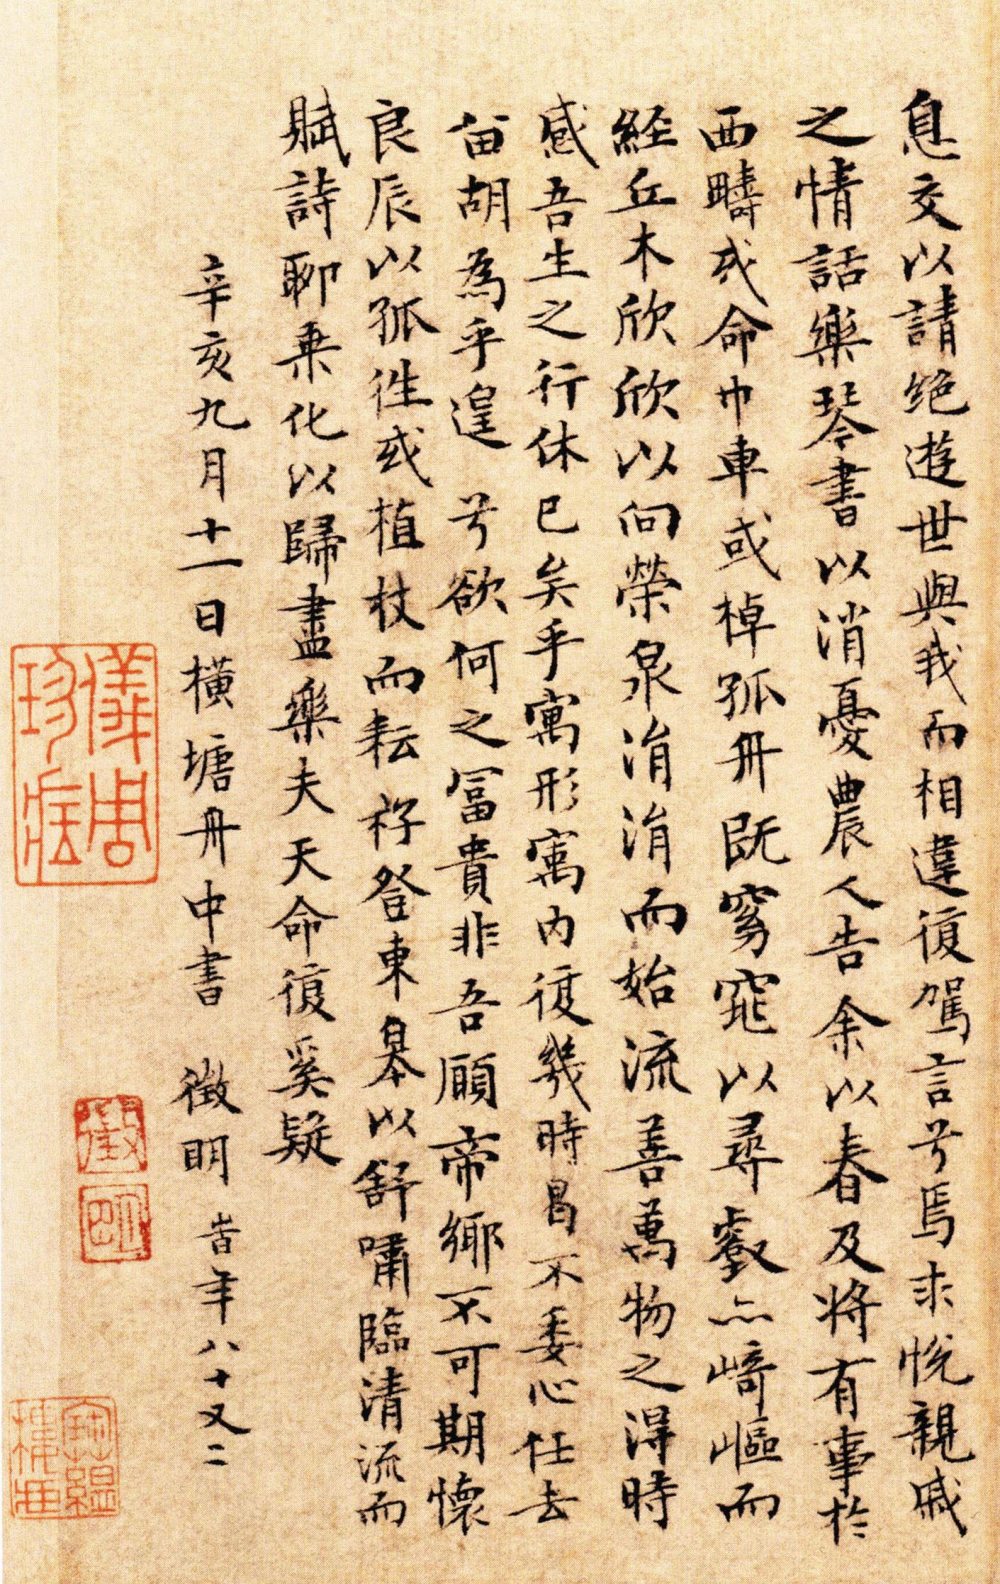 息交以請絕遊世與我而相違復駕言兮焉求悅親戚
之情話樂琴書以消憂農人告余以春及將有事於
西疇或命巾車或棹孤舟既窈窕以尋壑亦崎嶇而
經丘木欣欣以向榮泉涓涓而始流善萬物之得時
感吾生之行休已矣乎寓形寓內復幾時曷不委心任去
留胡為乎遑 兮欲何之富貴非吾願帝鄉不可期懷
良辰以孤往或植杖而耘耔登東皋以舒嘯臨清流而
賦詩聊乘化以歸盡樂夫天命復奚疑
辛亥九月十一日橫塘舟中書 徵明 時年八十又二
徵
明
儀周珍藏